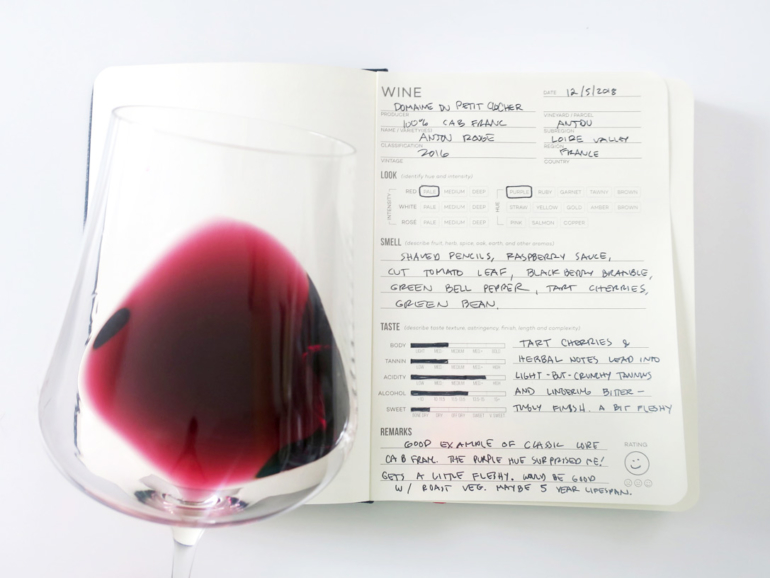 WINE
DATE 12/5/2018
DOMAINE DU PETIT CLOCHER
PRODUCER VINEYARD / PARCEL
100% CAB FRANC ANJOU
NAME / VARIETY(IES) SUBREGION
ANJOU ROUGE LOIRE VALLEY
CLASSIFICATION REGION
2016 FRANCE
VINTAGE COUNTRY
LOOK (identify hue and intensity)
INTENSITY
RED PALE MEDIUM DEEP
WHITE PALE MEDIUM DEEP
ROSÉ PALE MEDIUM DEEP
HUE
PURPLE RUBY GARNET TAWNY BROWN
STRAW YELLOW GOLD AMBER BROWN
PINK SALMON COPPER
SMELL (describe fruit, herb, spice, oak, earth, and other aromas)
SHAVED PENCILS, RASPBERRY SAUCE,
CUT TOMATO LEAF, BLACKBERRY BRAMBLE,
GREEN BELL PEPPER, TART CHERRIES,
GREEN BEAN.
TASTE (describe taste texture, astringency, finish, length and complexity)
BODY
TANNIN
ACIDITY
ALCOHOL
SWEET
TART CHERRIES &
HERBAL NOTES LEAD INTO
LIGHT-BUT-CRUNCHY TANNINS
AND LINGERING BITTER-
TINGLY FINISH. A BIT FLESHY
REMARKS
GOOD EXAMPLE OF CLASSIC LOIRE
CAB FRANC. THE PURPLE HUE SURPRISED ME!
GETS A LITTLE FLESHY. WOULD BE GOOD
W/ ROAST VEG. MAYBE 5 YEAR LIFESPAN.
RATING